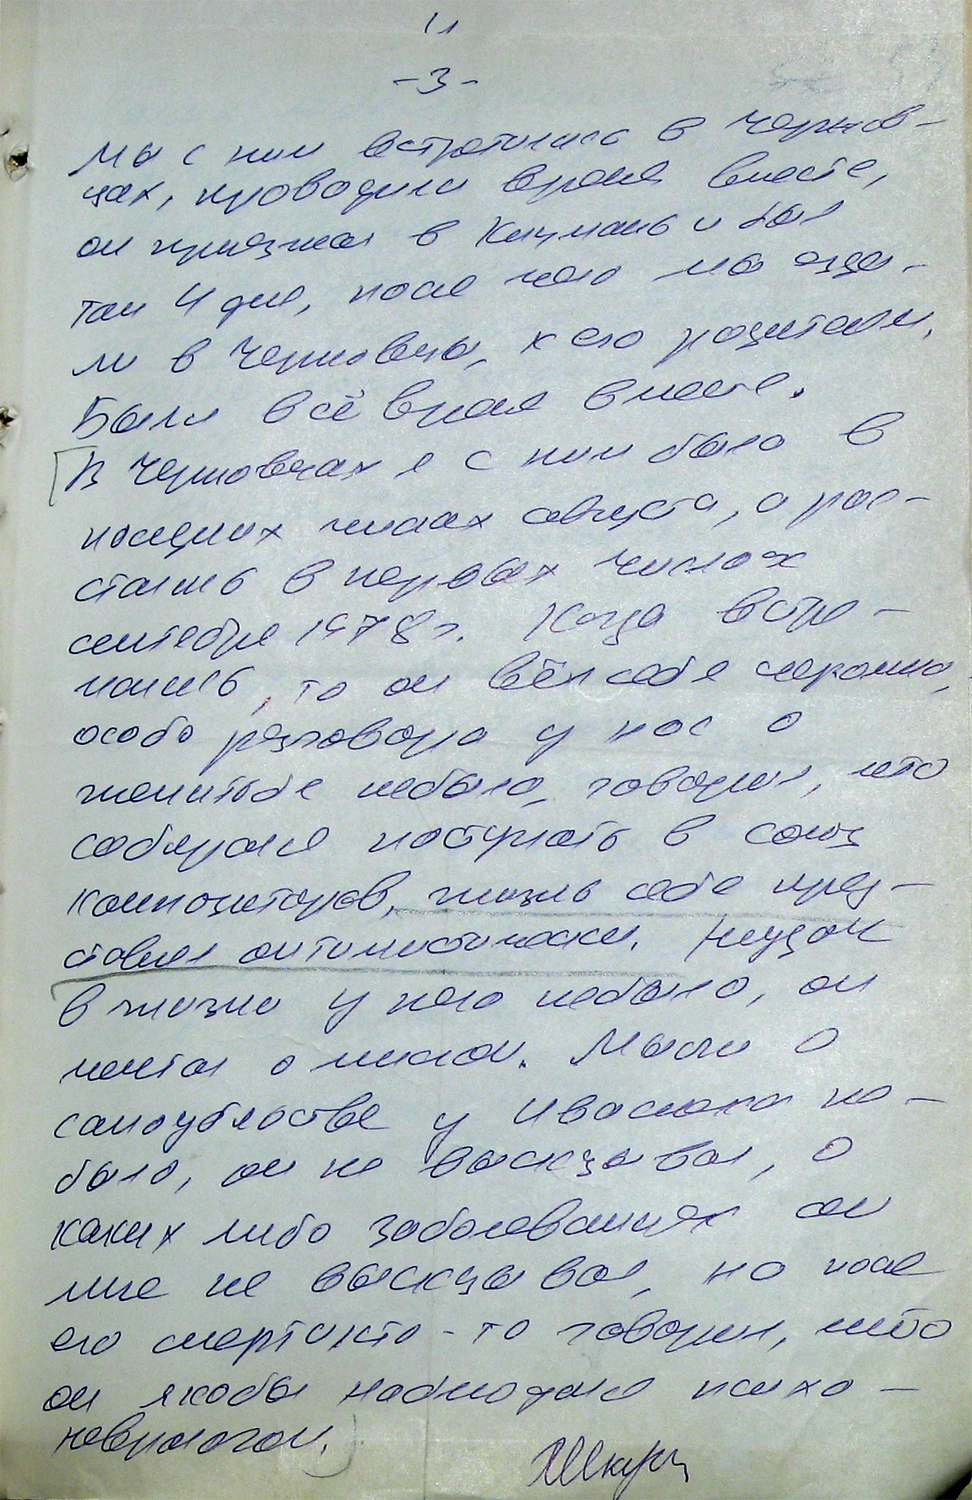 -3-
Мы с ним встретились в Чернов-
цах, проводили время вместе,
он приезжал в Кицмань и был
там 4 дня, после чего мы езди-
ли в Черновцы, к его родителям.
Были всё время вместе.
В Черновцах я с ним была в
последних числах августа, а рас-
стались в первых числах
сентября 1978 г. Когда встре-
чались, то он вёл себя скромно,
особо разговора у нас о
женитьбе небыло, говорил, что
собирался поступать в союз
композиторов, жизнь себе пред-
ставлял оптимистически. Неудач
в жизни у него небыло, он
мечтал о многом. Мысли о
самоубийстве у Ивасюка не-
было, он не высказывал, о
каких либо заболеваниях он
мне не высказывал, но после
его смерти кто-то говорил, что
он якобы наблюдался психо-
неврологом.